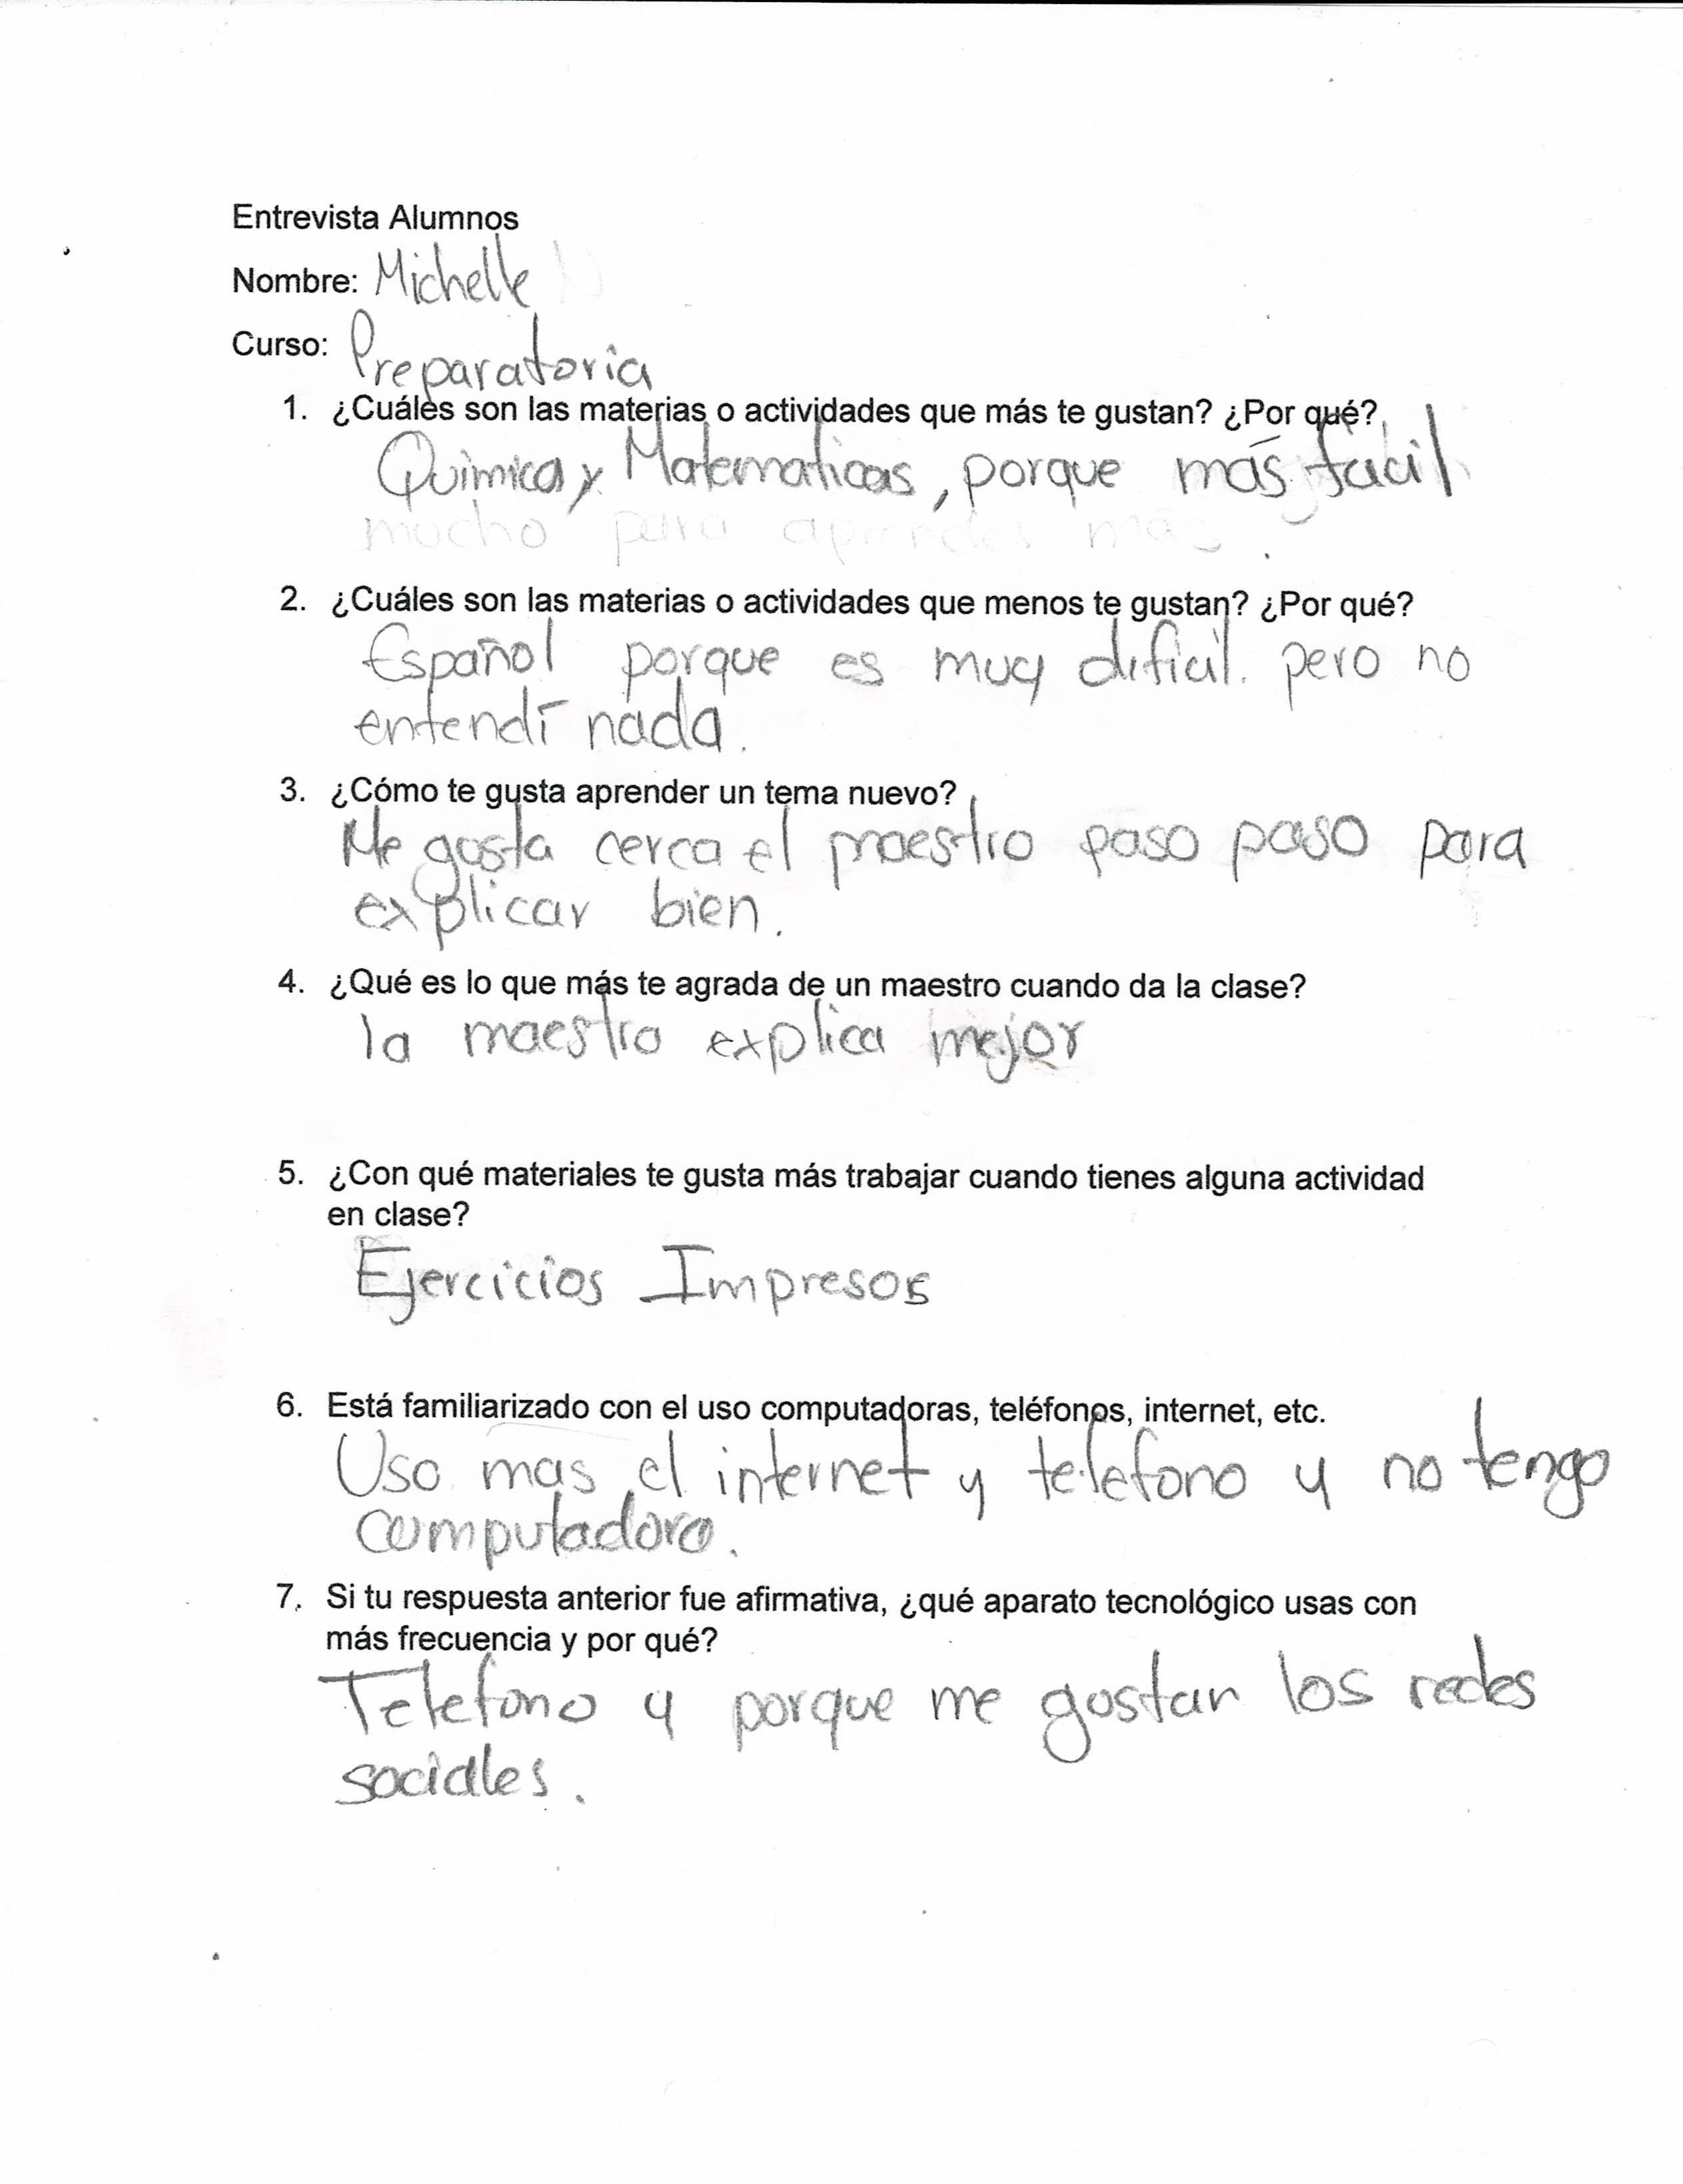 Entrevista Alumnos
Nombre: Michelle
Curso: Preparatoria
1. ¿Cuáles son las materias o actividades que más te gustan? ¿Por qué?
Quimica y Matematicas, porque más facil
mucho para aprender más
2. ¿Cuáles son las materias o actividades que menos te gustan? ¿Por qué?
Español porque es muy dificil. pero no
entendí nada.
3. ¿Cómo te gusta aprender un tema nuevo?
Me gusta cerca el maestro paso paso para
explicar bien.
4. ¿Qué es lo que más te agrada de un maestro cuando da la clase?
la maestra explica mejor
5. ¿Con qué materiales te gusta más trabajar cuando tienes alguna actividad
en clase?
Ejercicios Impresos
6. Está familiarizado con el uso computadoras, teléfonos, internet, etc.
Uso mas el internet y telefono y no tengo
computadora.
7. Si tu respuesta anterior fue afirmativa, ¿qué aparato tecnológico usas con
más frecuencia y por qué?
Telefono y porque me gustan los redes
sociales.